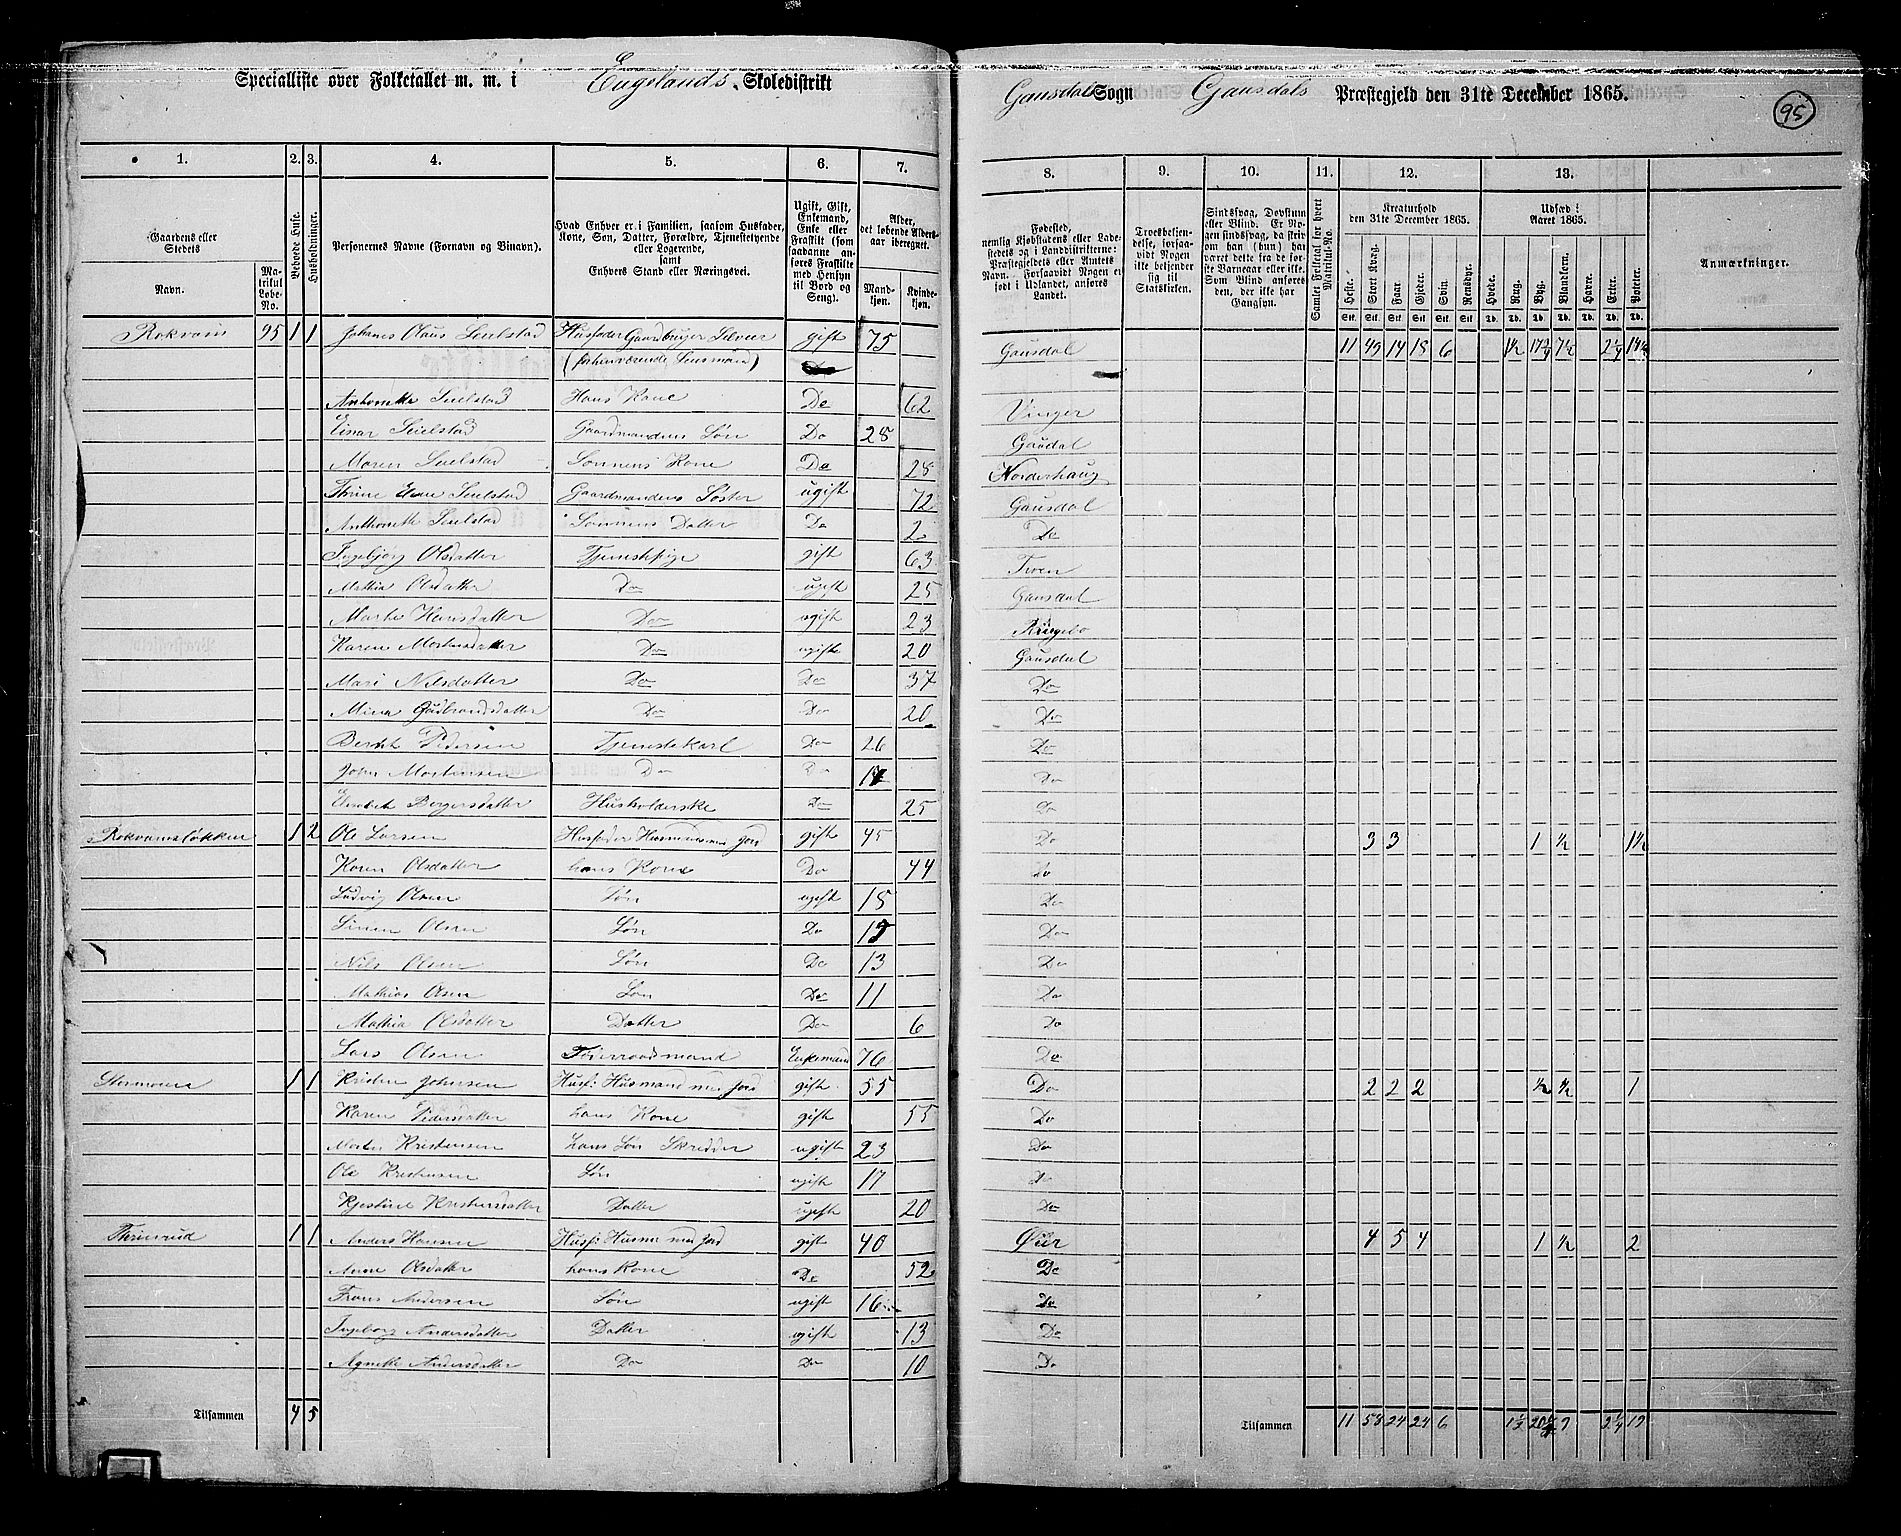 Specialliste over Folketallet m. m. i Engelands Skoledistrikt
Gausdal Sogn Gausdals Præstegjeld den 31te December 1865.
95
1. 2. 3. 4. 5. 6. 7. 8. 9. 10. 11. 12. 13.
Gaardens eller Stedets
Navn.
Matrikul Løbe-No.
Beboede Huse.
Husholdninger.
Personernes Navne (Fornavn og Binavn).
Hvad Enhver er i Familien, saasom Husfader, Kone, Søn, Datter, Forældre, Tjenestetyende eller Logerende, samt Enhvers Stand eller Næringsvei.
Ugift, Gift, Enkemand, Enke eller Fraskilt (som saadanne anføres Fraskilte med Hensyn til Bord og Seng).
Alder, det løbende Alders-aar iberegnet.
Mandkjøn. Kvindekjøn.
Fødested, nemlig Kjøbstadens eller Ladestedets og i Landdistrikterne: Præstegjeldets eller Amtets Navn. Forsaavidt Nogen er født i Udlandet, anføres Landet.
Troesbekjendelse, forsaavidt Nogen ikke bekjender sig til Statskirken.
Sindssvag, Døvstum eller Blind. Er Nogen sindssvag, da skrives om han (hun) har været dette fra de første Barneaar eller ikke. Som Blind anføres den, der ikke har Gangsyn.
Samlet Folketal for hvert Matrikul-No.
Kreaturhold den 31te December 1865.
Heste. Stort Kvæg. Faar. Gjeder. Svin. Rensdyr.
Udsæd i Aaret 1865.
Hvede. Rug. Byg. Blandkorn. Havre. Erter. Poteter.
Anmærkninger.
Rokvam 95 1 1 Johans Olaus Seielstad Husfader Gaardbruger Selveier gift 75 Gausdal 11 49 14 18 6 1½ 17¾ 7½ 2¼ 14½
(forhenværende Lensmand)
Anthonette Seielstad Hans Kone Do 62 Vinger
Einar Seielstad Gaardmandens Søn Do 28 Gausdal
Maren Seielstad Sønnens Kone Do 28 Norderhaug
Seielstad Gaardmandens Søster ugift 72 Gausdal
Anthonette Seielstad Sønnens Datter Do 2 Do
Ingebjørg Olsdatter Tjenestepige gift 63 Froen
Mathia Olsdatter Do ugift 25 Gausdal
Marthe Hansdatter Do ugift 23 Ringebo
Karen Mortensdatter Do ugift 20 Gausdal
Mari Nilsdatter Do Do 37 Do
Mina Gudbrandsdatter Do Do 20 Do
Pedersen Tjenestekarl Do 26 Do
John Mortensen Do Do Do
Elisabeth Bergersdatter Husholderske Do 25 Do
Rokvamsløkken 1 2 Ole Larsen Husfader Husmand med Jord gift 45 Do 3 3 1 ½ 1½
Karen Olsdatter hans Kone Do 44 Do
Ludvig Olsen Søn ugift 18 Do
Simen Olsen Søn Do Do
Nils Olsen Søn Do 13 Do
Mathias Olsen Søn Do 11 Do
Mathia Olsdatter Datter Do 6 Do
Lars Olsen Føderaadsmand Enkemand 76 Do
1 1 Kristen Johnsen Husf: Husmand med Jord gift 55 Do 2 2 2 ½ ½ 1
Karen Pedersdatter hans Kone gift 55 Do
Morten Kristensen hans Søn Skredder ugift 23 Do
Ole Kristensen Søn ugift 17 Do
Kjestine Kristensdatter Datter ugift 20 Do
1 1 Anders Hansen Husf: Husm med Jord gift 40 Øier 4 5 4 1 ½ 2
Anne Olsdatter hans Kone Do 52 Do
Frans Andersen Søn ugift 16 Do
Ingeborg Andersdatter Datter ugift 13 Do
Agnethe Andersdatter Do Do 10 Do
Tilsammen 4 5
Tilsammen 11 58 24 24 6 1½ 2¼ 19